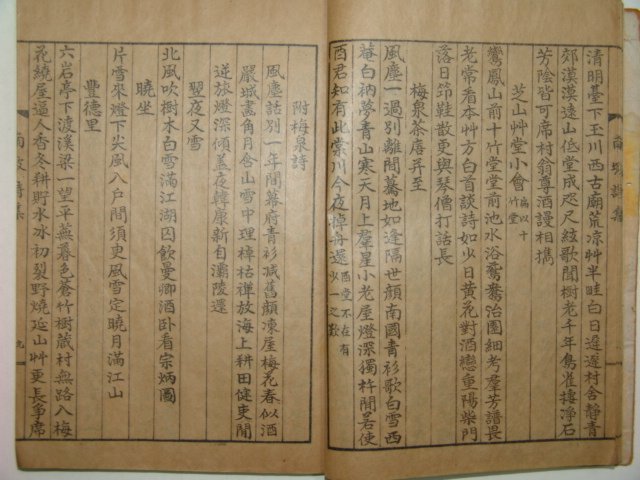 清明臺下玉川西古廟荒凉艸半畦白日遲遲村舍靜青
郊漠漠遠山低堂成咫尺絃歌聞樹老千年鳥雀捿淨石
芳陰皆可席村翁尊酒謾相攜
芝山艸堂小會 扁以十竹堂
鸞鳳山前十竹堂堂前池水浴鴛鴦治圃細考羣芳譜畏
老常看本艸方白首談詩如少日黃花對酒戀重陽柴門
落日筇鞋散更與琴僧打話長
梅泉茶扈幷至
風塵一過別離間驀地如逢隔世顔南國青衫歌白雪西
菴白衲夢青山寒天月上羣星小老屋燈深獨杵閒若使
酉君知有此棠川今夜棹舟還 酉堂不在有少一之歎
附梅泉詩
風塵話別一年間幕府青衫减舊顔凍屋梅花春似酒
嚴城畵角月含山雪中理棹枯禪放海上耕田健吏閒
逆旅燈深傾盖夜韓康新自灞陵還
翌夜又雪
北風吹樹木白雪滿江湖囚飮曼卿酒卧看宗炳圖
曉坐
片雪來燈下尖風入戶間須臾風雪定曉月滿江山
豐德里
六岩亭下渡溪梁一望平蕪暮色蒼竹樹藏村無路入梅
花繞屋逼人香冬耕野水冰初裂野燒延山艸更長爭席